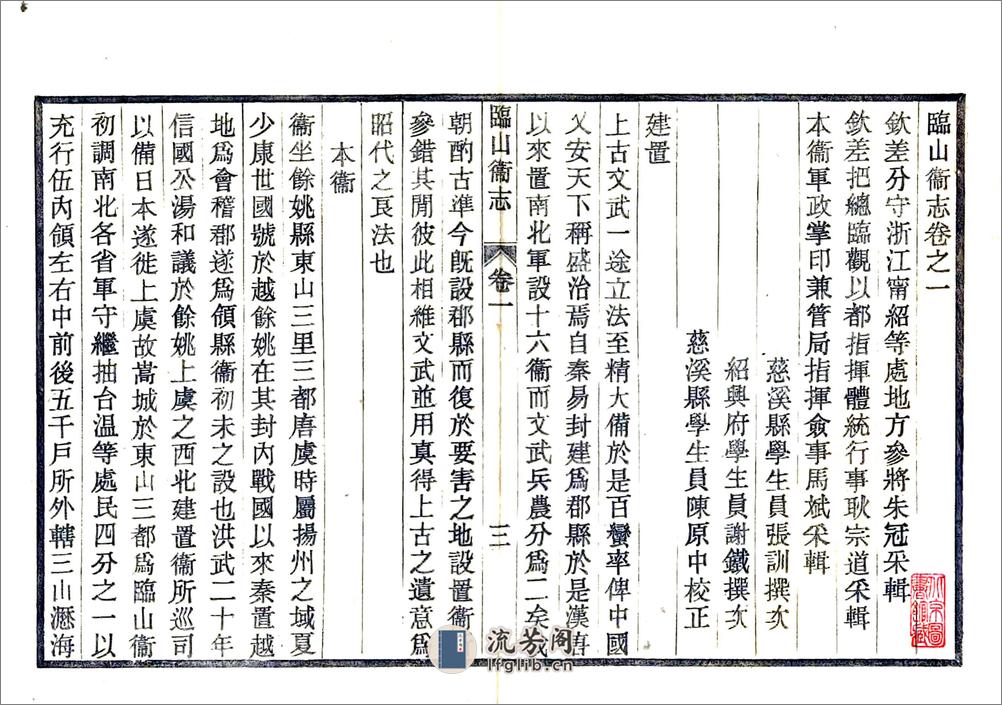 臨山衞志卷之一
欽差分守浙江甯紹等處地方參將朱冠采輯
欽差把總臨觀以都指揮體統行事耿宗道采輯
本衞軍政掌印兼管局指揮僉事馬斌采輯
慈溪縣學生員張訓撰次
紹興府學生員謝鐵撰次
慈溪縣學生員陳原中校正
建置
上古文武一途立法至精大備於是百蠻率俾中國
乂安天下稱盛治焉自秦易封建爲郡縣於是漢唐
以來置南北軍設十六衞而文武兵農分爲二矣我
臨山衞志
卷一
三
朝酌古準今旣設郡縣而復於要害之地設置衞
參錯其閒彼此相維文武並用真得上古之遺意爲
昭代之良法也
本衞
衞坐餘姚縣東山三里三都唐虞時屬揚州之域夏
少康世國號於越餘姚在其封內戰國以來秦置越
地爲會稽郡遂爲領縣衞初未之設也洪武二十年
信國公湯和議於餘姚上虞之西北建置衞所巡司
以備日本遂徙上虞故嵩城於東山三都爲臨山衞
初調南北各省軍守繼抽台溫等處民四分之一以
充行伍內領左右中前後五千戶所外轄三山瀝海
流芳阁
lfglib.cn